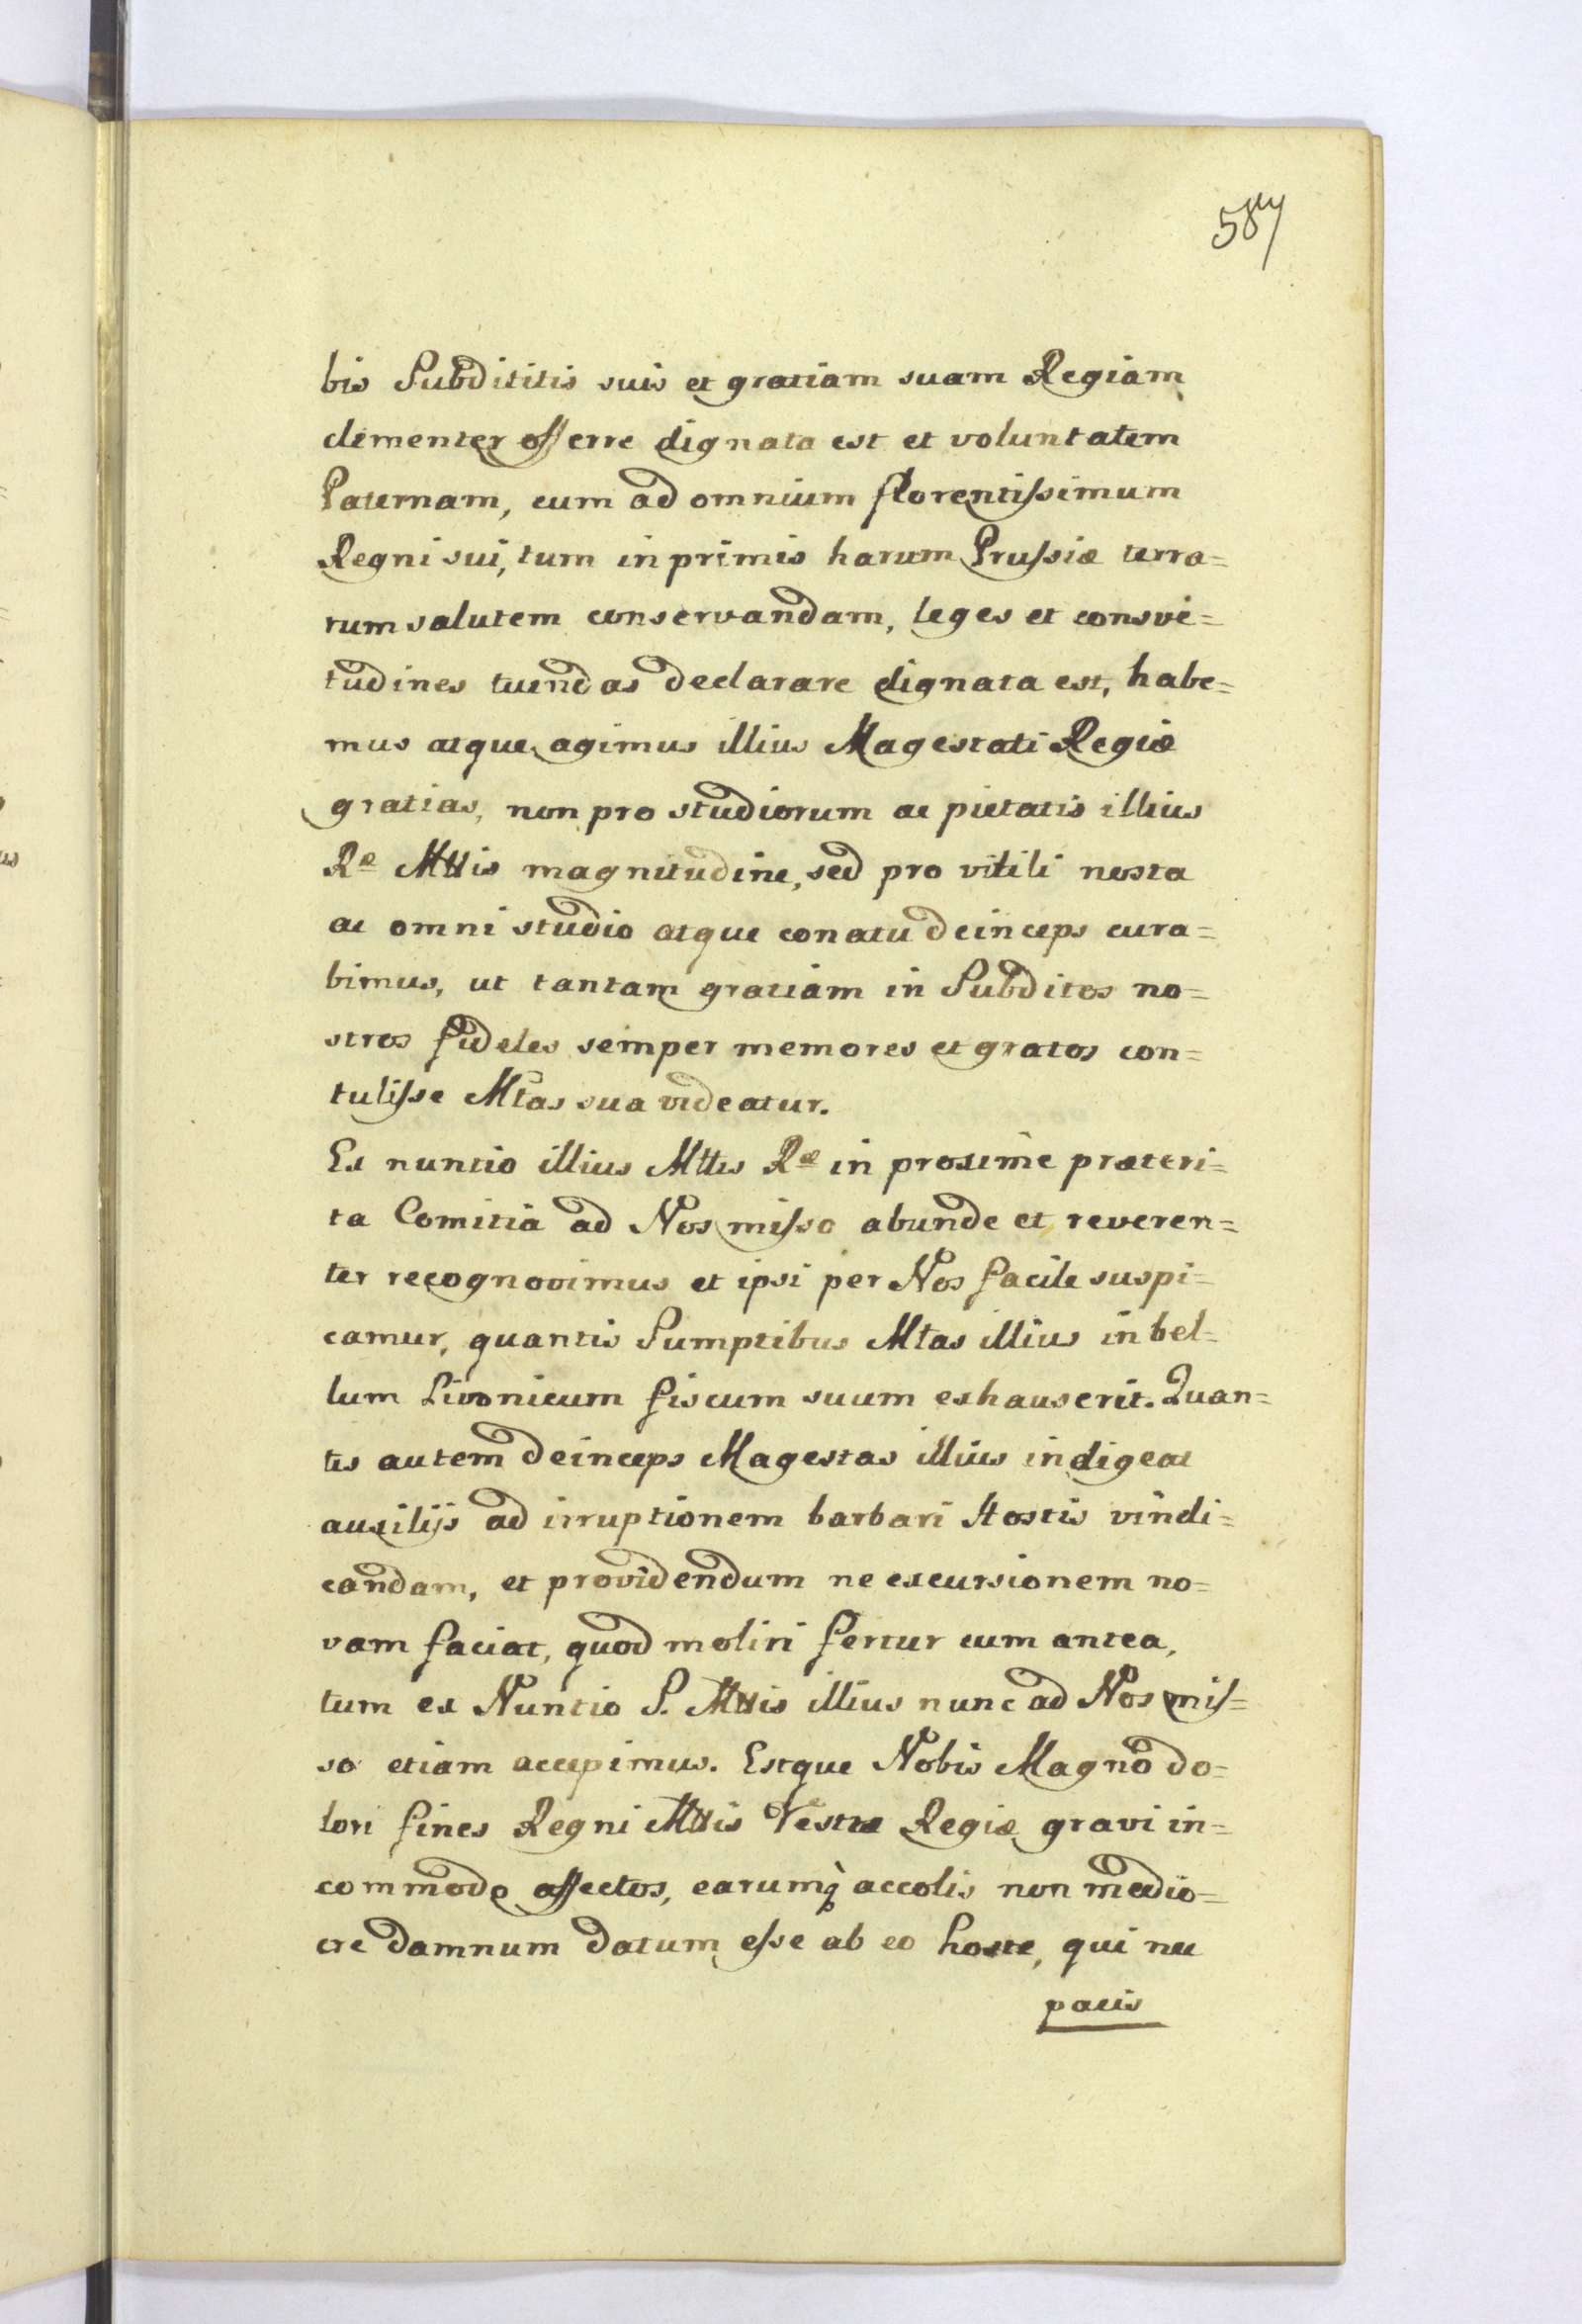 587
bis Subdititis suis et gratiam suam Regiam
clementer offerre dignata est et voluntatem
Paternam, cum ad omnium florentissimum
Regni sui, tum in primis harum Prussiæ terra=
rum salutem conservandam, leges et consve=
tudines tuendas declarare dignata est, habe=
mus atque agimus illius Magestati Regiæ
gratias, non pro studiorum ac pietatis illius
Ræ Mttis magnitudine, sed pro vitili nosta
ac omni studio atque conatu deinceps cura=
bimus, ut tantam gratiam in Subditos no=
stros fideles semper memores et gratos con=
tulisse Mtas sua videatur.
Ex nuntio illius Mttis Ræ in proxime præteri=
ta Comitia ad Nos misso abunde et reveren=
ter recognovimus et ipsi per Nos facile suspi=
camur, quantis Sumptibus Mtas illius in bel=
lum Livonicum fiscum suum exhauserit. Quan=
tis autem deinceps Magestas illius indigeat
auxilijs ad irruptionem barbari Hostis vindi=
candam, et providendum ne excursionem no=
vam faciat, quod moliri fertur cum antea,
tum ex Nuntio S. Mttis illius nunc ad Nos mis=
so etiam accepimus. Estque Nobis Magno do=
lori fines Regni Mttis Vestræ Regiæ gravi in=
commodo affectos, earumq̀ accolis non medio=
cre damnum datum esse ab eo hoste, qui nec
pacis